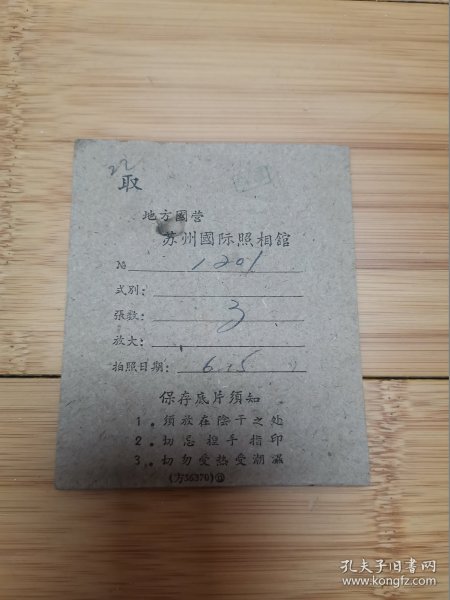 22
取
地方國营
苏州國际照相舘
№ 1201
式别:
張数: 3
放大:
拍照日期: 6.25
保存底片须知
1. 须放在陰干之处
2. 切忌捏手指印
3. 切勿受热受潮濕
(方56370)
孔夫子旧书网
www.kongfz.com